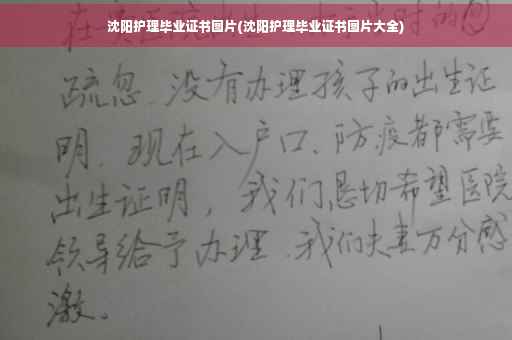 沈阳护理毕业证书图片(沈阳护理毕业证书图片大全)
疏忽.没有办理孩子的出生证
明.现在入户口、防疫都需要
出生证明,我们恳切希望医院
领导给予办理.我们夫妻万分感
激。